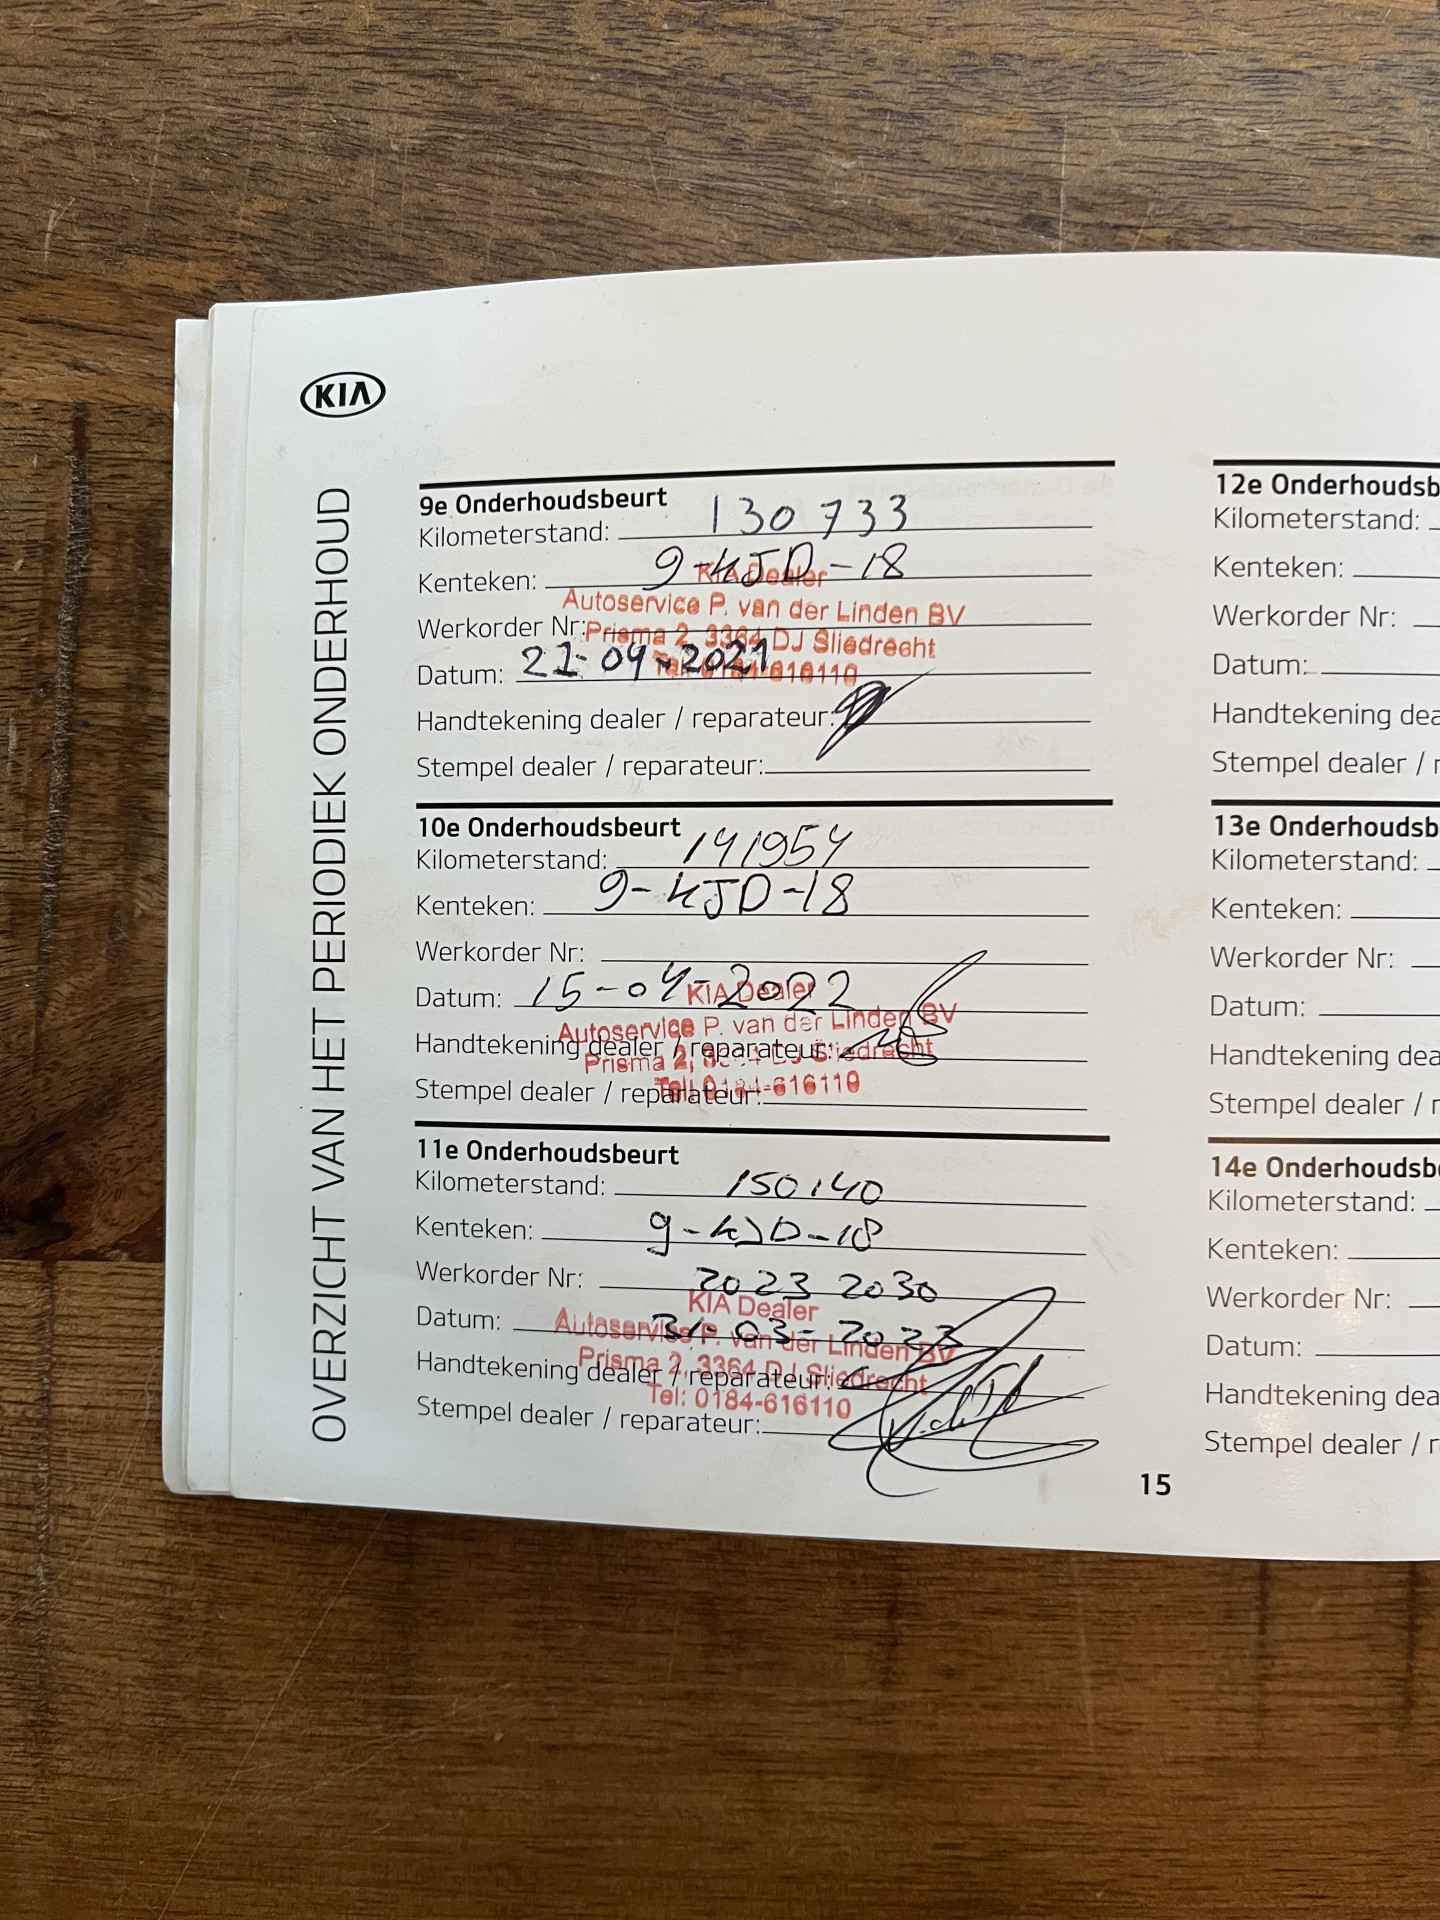 KIA
OVERZICHT VAN HET PERIODIEK ONDERHOUD
9e Onderhoudsbeurt
Kilometerstand: 130 733
Kenteken: 9-KJD-18
KIA Dealer
Autoservice P. van der Linden BV
Werkorder Nr:
Prisma 2, 3364 DJ Sliedrecht
Datum: 21-04-2021
Handtekening dealer / reparateur:
Stempel dealer / reparateur:
10e Onderhoudsbeurt
Kilometerstand: 141954
Kenteken: 9-KJD-18
Werkorder Nr:
Datum: 15-04-2022
KIA Dealer
Autoservice P. van der Linden BV
Handtekening dealer / reparateur:
Prisma 2, DJ Sliedrecht
Tel: 0184-616110
Stempel dealer / reparateur:
11e Onderhoudsbeurt
Kilometerstand: 150140
Kenteken: 9-KJD-18
Werkorder Nr: 2023 2030
KIA Dealer
Datum: 31-03-2023
Autoservice P. van der Linden BV
Prisma 2, 3364 DJ Sliedrecht
Handtekening dealer / reparateur:
Tel: 0184-616110
Stempel dealer / reparateur:
15
12e Onderhoudsb
Kilometerstand:
Kenteken:
Werkorder Nr:
Datum:
Handtekening dea
Stempel dealer / r
13e Onderhoudsb
Kilometerstand:
Kenteken:
Werkorder Nr:
Datum:
Handtekening dea
Stempel dealer / r
14e Onderhoudsb
Kilometerstand:
Kenteken:
Werkorder Nr:
Datum:
Handtekening dea
Stempel dealer / r